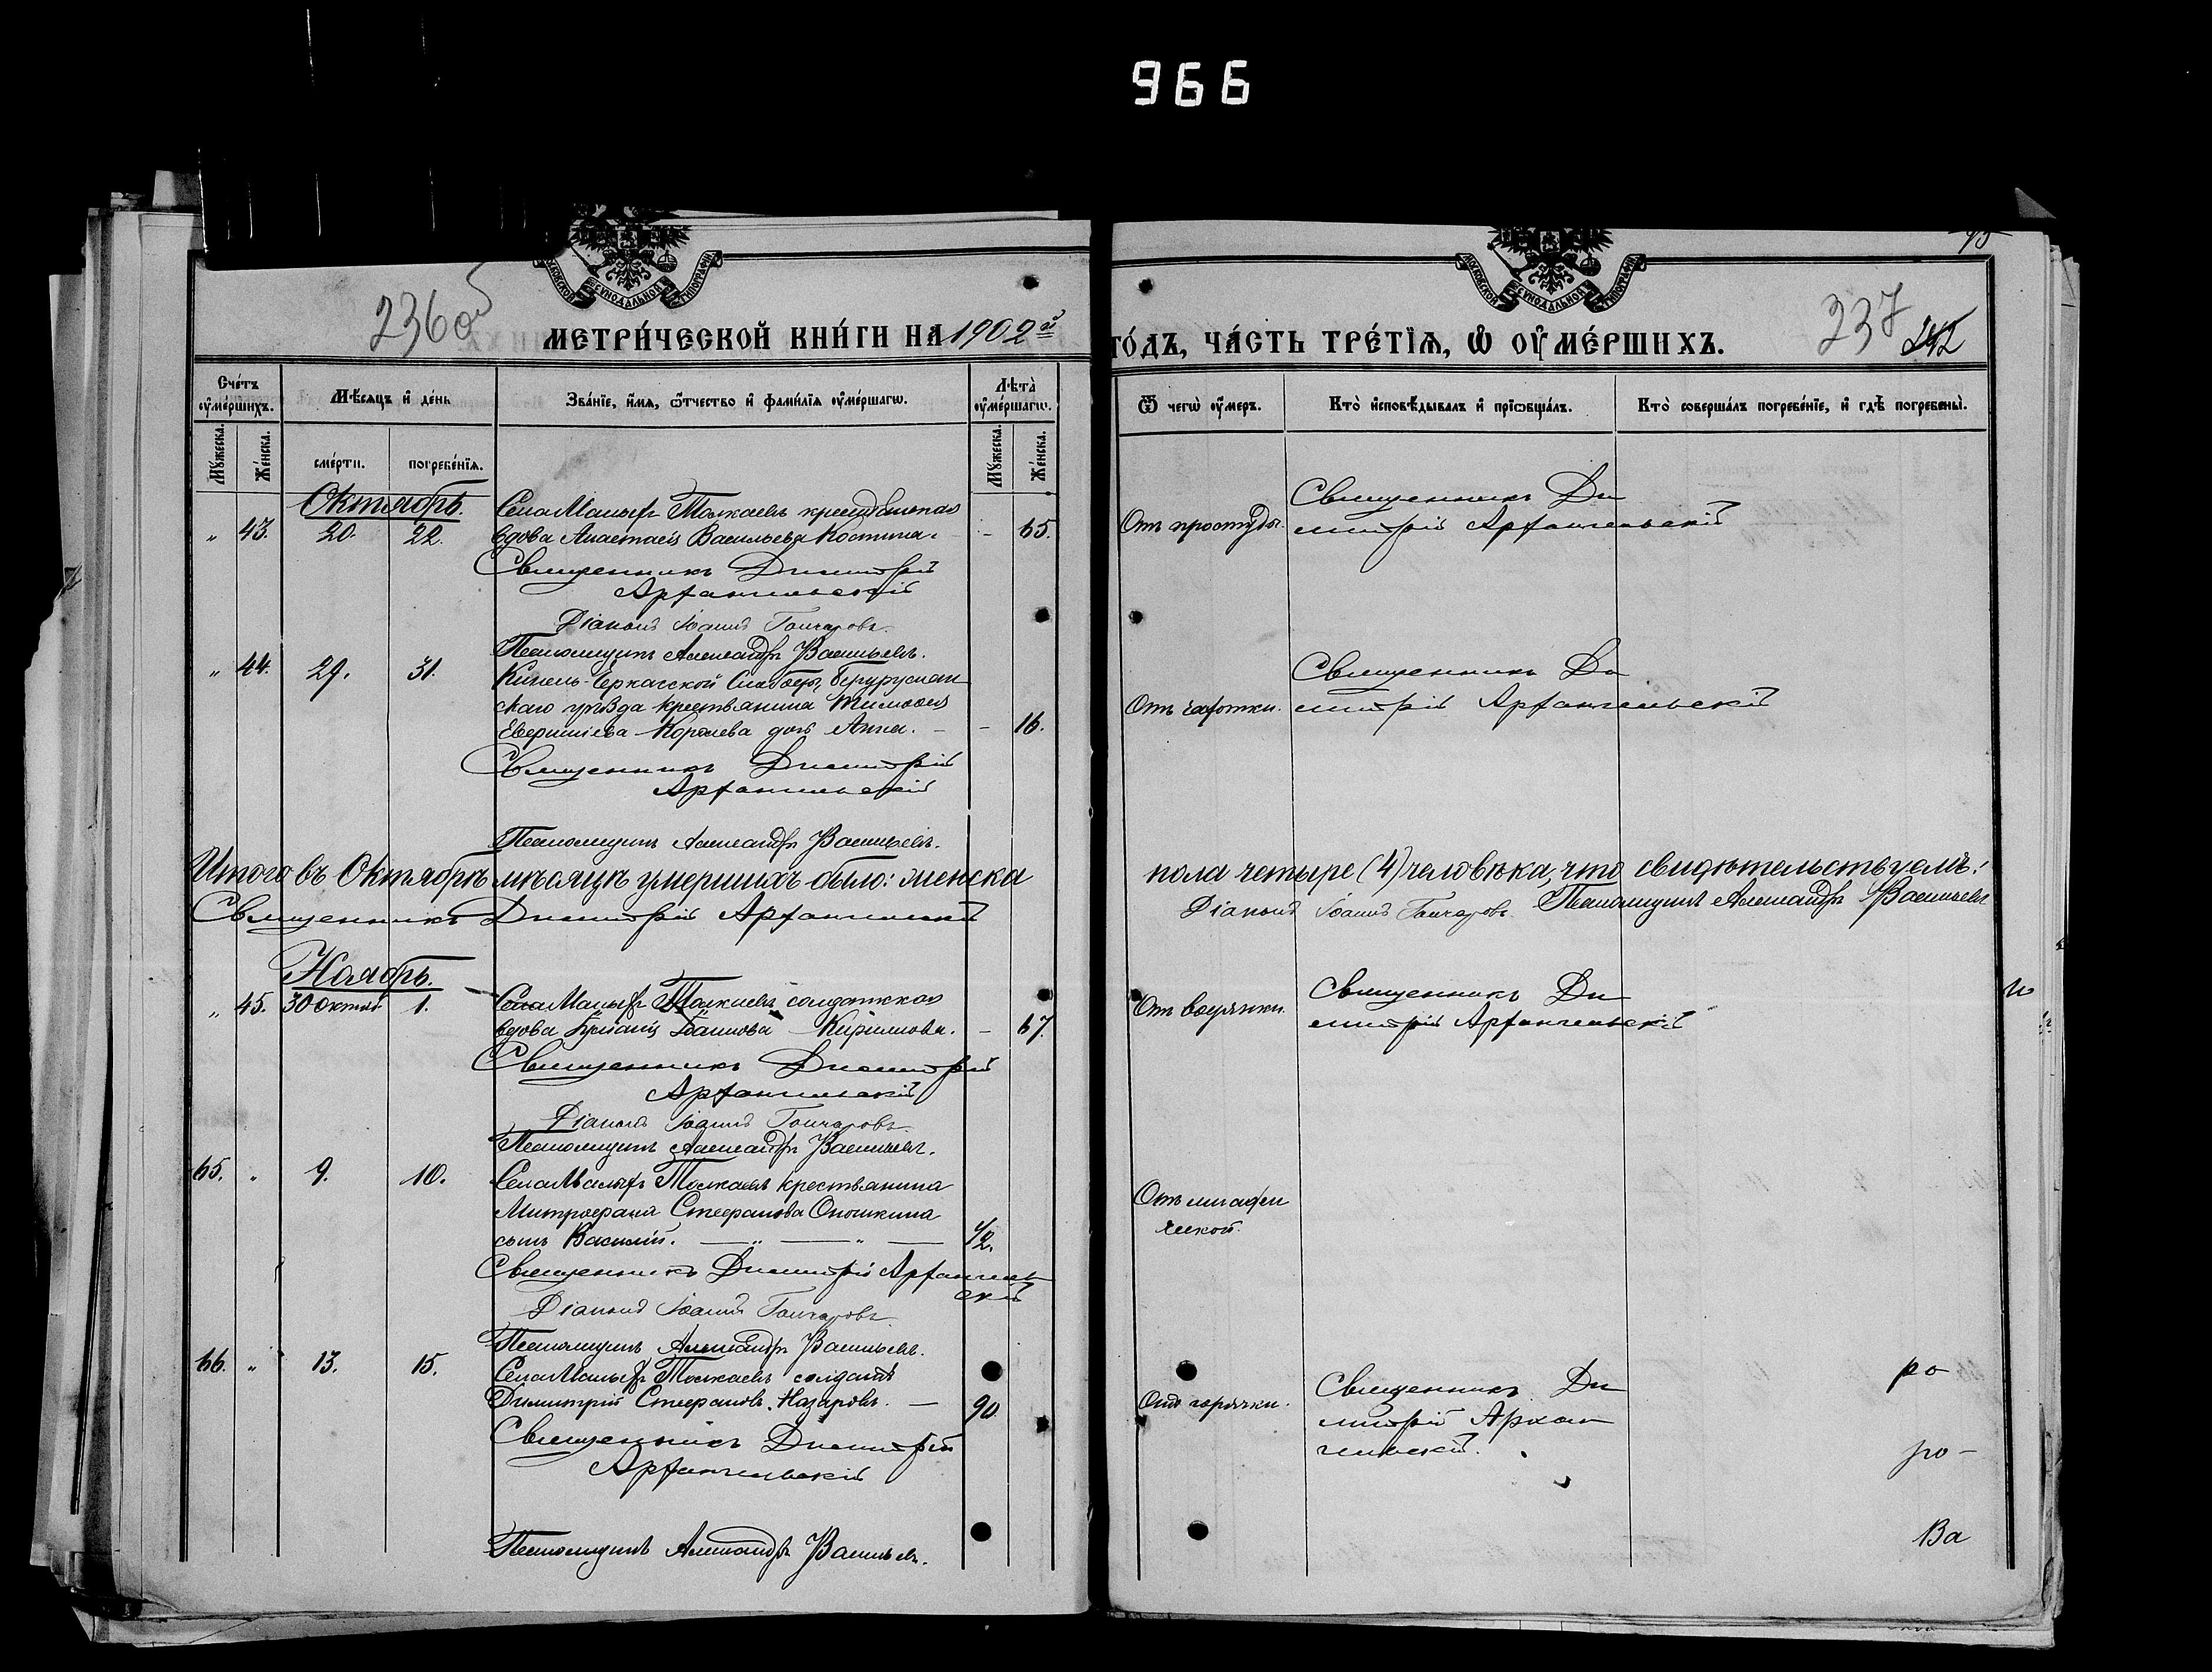 966
236об
МЕТРИЧЕСКОЙ КНИГИ НА 1902й
ГОДЪ, ЧАСТЬ ТРЕТІЯ, Ѽ ОУМЕРШИХЪ.
237 242
Счетъ оумершихъ.
Мѣсяцъ и день
Званіе, имя, ѿчество и фамилія оумершагѡ.
Лѣта оумершагѡ.
Ѿ чегѡ оумеръ.
Кто исповѣдывалъ и пріѡбщалъ.
Кто совершалъ погребеніе, и гдѣ погребены.
Мужеска.
Женска.
смерти.
погребенія.
Мужеска.
Женска.
Октябрь.
" 43. 20. 22. Села Малыхъ Толкаевъ крестьянская
вдова Анастасія Васильева Костина. - 65. Отъ простуды.
Священникъ Ди
митрій Архангельскій
Священникъ Димитрій
Архангельскій
Діаконъ Іоаннъ Гончаровъ.
Псаломщикъ Александръ Васильевъ.
" 44. 29. 31. Кинель-Черкасской Слободы, Бугуруслан
скаго уѣзда крестьянина
Королева дочь Анна. - 16. Отъ чахотки.
Священникъ Ди
митрій Архангельскій
Священникъ Димитрій
Архангельскій
Псаломщикъ Александръ Васильевъ.
Итого въ Октябрѣ мѣсяцѣ умершихъ было: женска пола четыре (4) человѣка, что свидѣтельствуемъ:
Священникъ Димитрій Архангельскій Діаконъ Іоаннъ Гончаровъ. Псаломщикъ Александръ Васильевъ
Ноябрь.
" 45. 30 Октяб. 1. Села Малыхъ Толкаевъ солдатская
вдова Іванова Кирилова. - 67. Отъ водянки.
Священникъ Ди
митрій Архангельскій
Священникъ Димитрій
Архангельскій
Діаконъ Іоаннъ Гончаровъ.
Псаломщикъ Александръ Васильевъ.
65. " 9. 10. Села Малыхъ Толкаевъ крестьянина
Митрофана Стефанова Оношкина
сынъ Василій. 1/2.
Отъ младен
ческой.
Священникъ Димитрій Архангель
скій
Діаконъ Іоаннъ Гончаровъ.
Псаломщикъ Александръ Васильевъ.
66. " 13. 15. Села Малыхъ Толкаевъ солдатъ
Димитрій Стефановъ Назаровъ. — 90. Отъ горячки.
Священникъ Ди
митрій Архан
гельскій.
Священникъ Димитрій
Архангельскій
Псаломщикъ Александръ Васильевъ.
ро
ро-
Ва